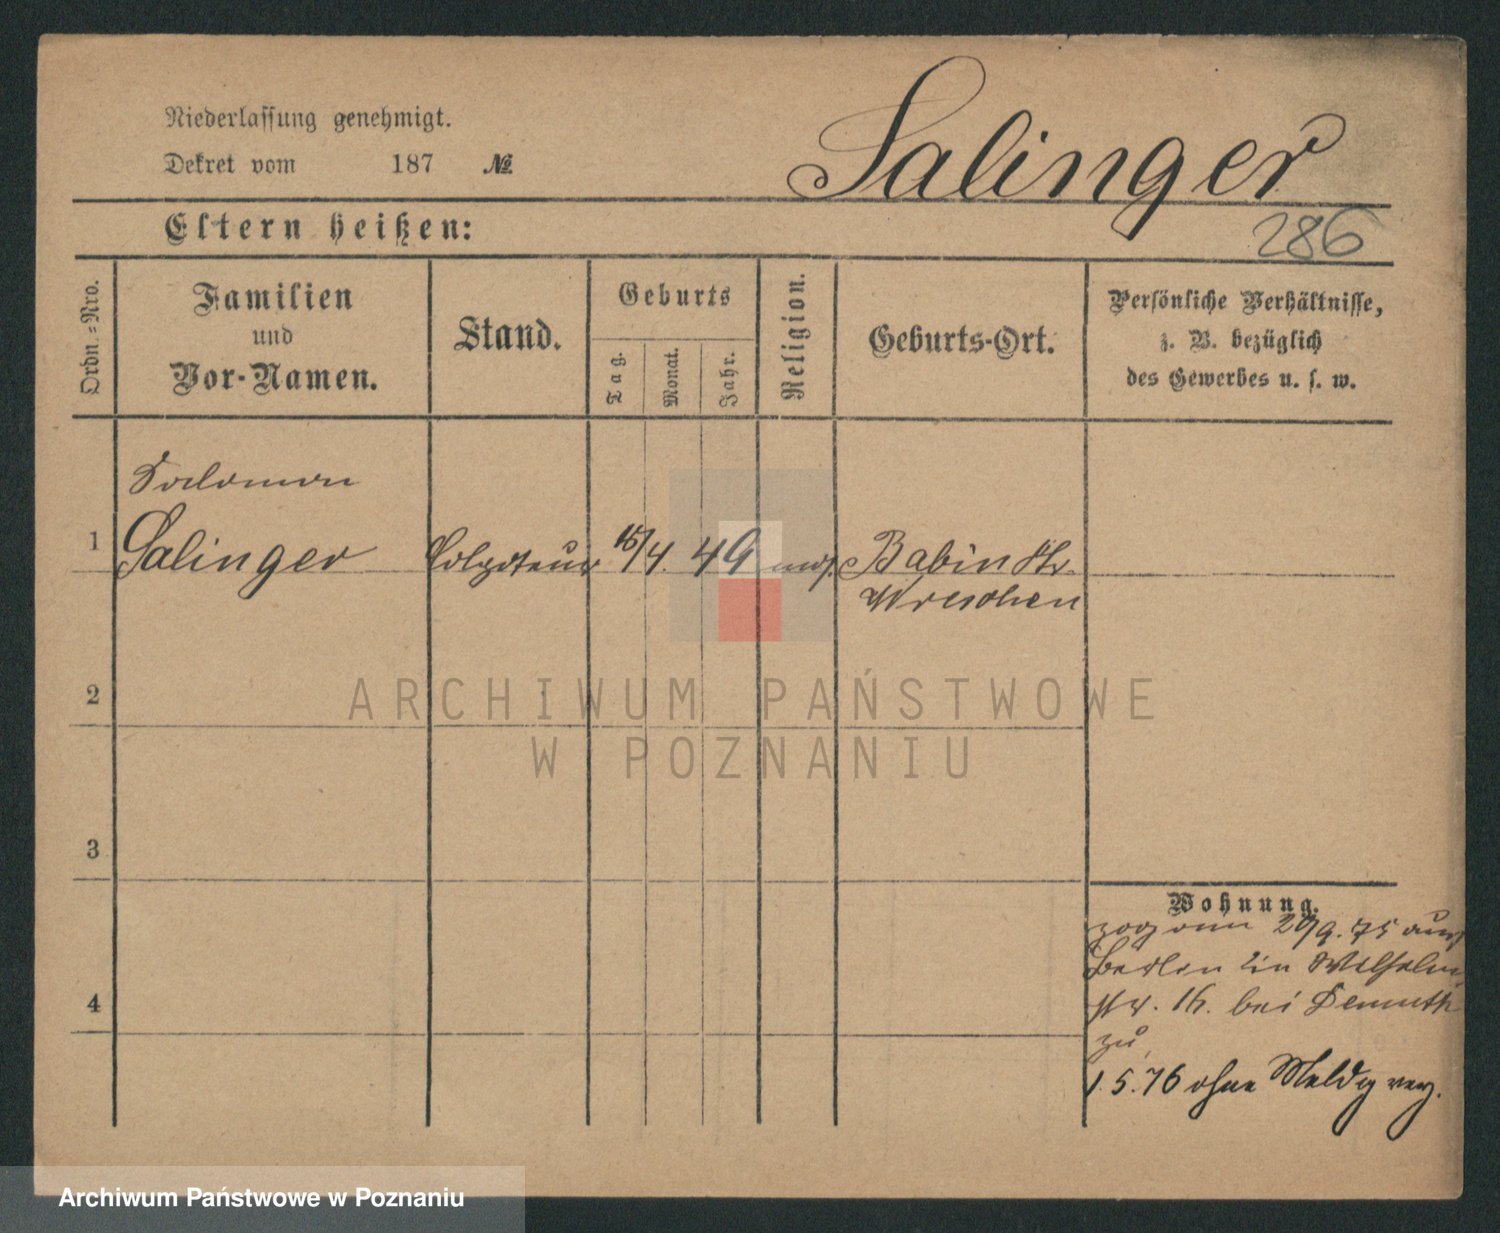 Niederlassung genehmigt.
Dekret vom 187 №
Salinger
Eltern heißen:
286
Ordn.-Nro.
Familien
und
Vor-Namen.
Stand.
Geburts
Tag.
Monat.
Jahr.
Religion.
Geburts-Ort.
Persönliche Verhältnisse,
z. B. bezüglich
des Gewerbes u. s. w.
Salomon
1 Salinger 15/4. 49 mos. Babin Kr.
Wreschen
2
3
4
Wohnung.
zog am 20/9. 75 aus
Berlin in Wilhelm
str. 16. bei Demuth
zu
1. 5. 76 ohne Meldg verz.
ARCHIWUM PAŃSTWOWE
W POZNANIU
Archiwum Państwowe w Poznaniu